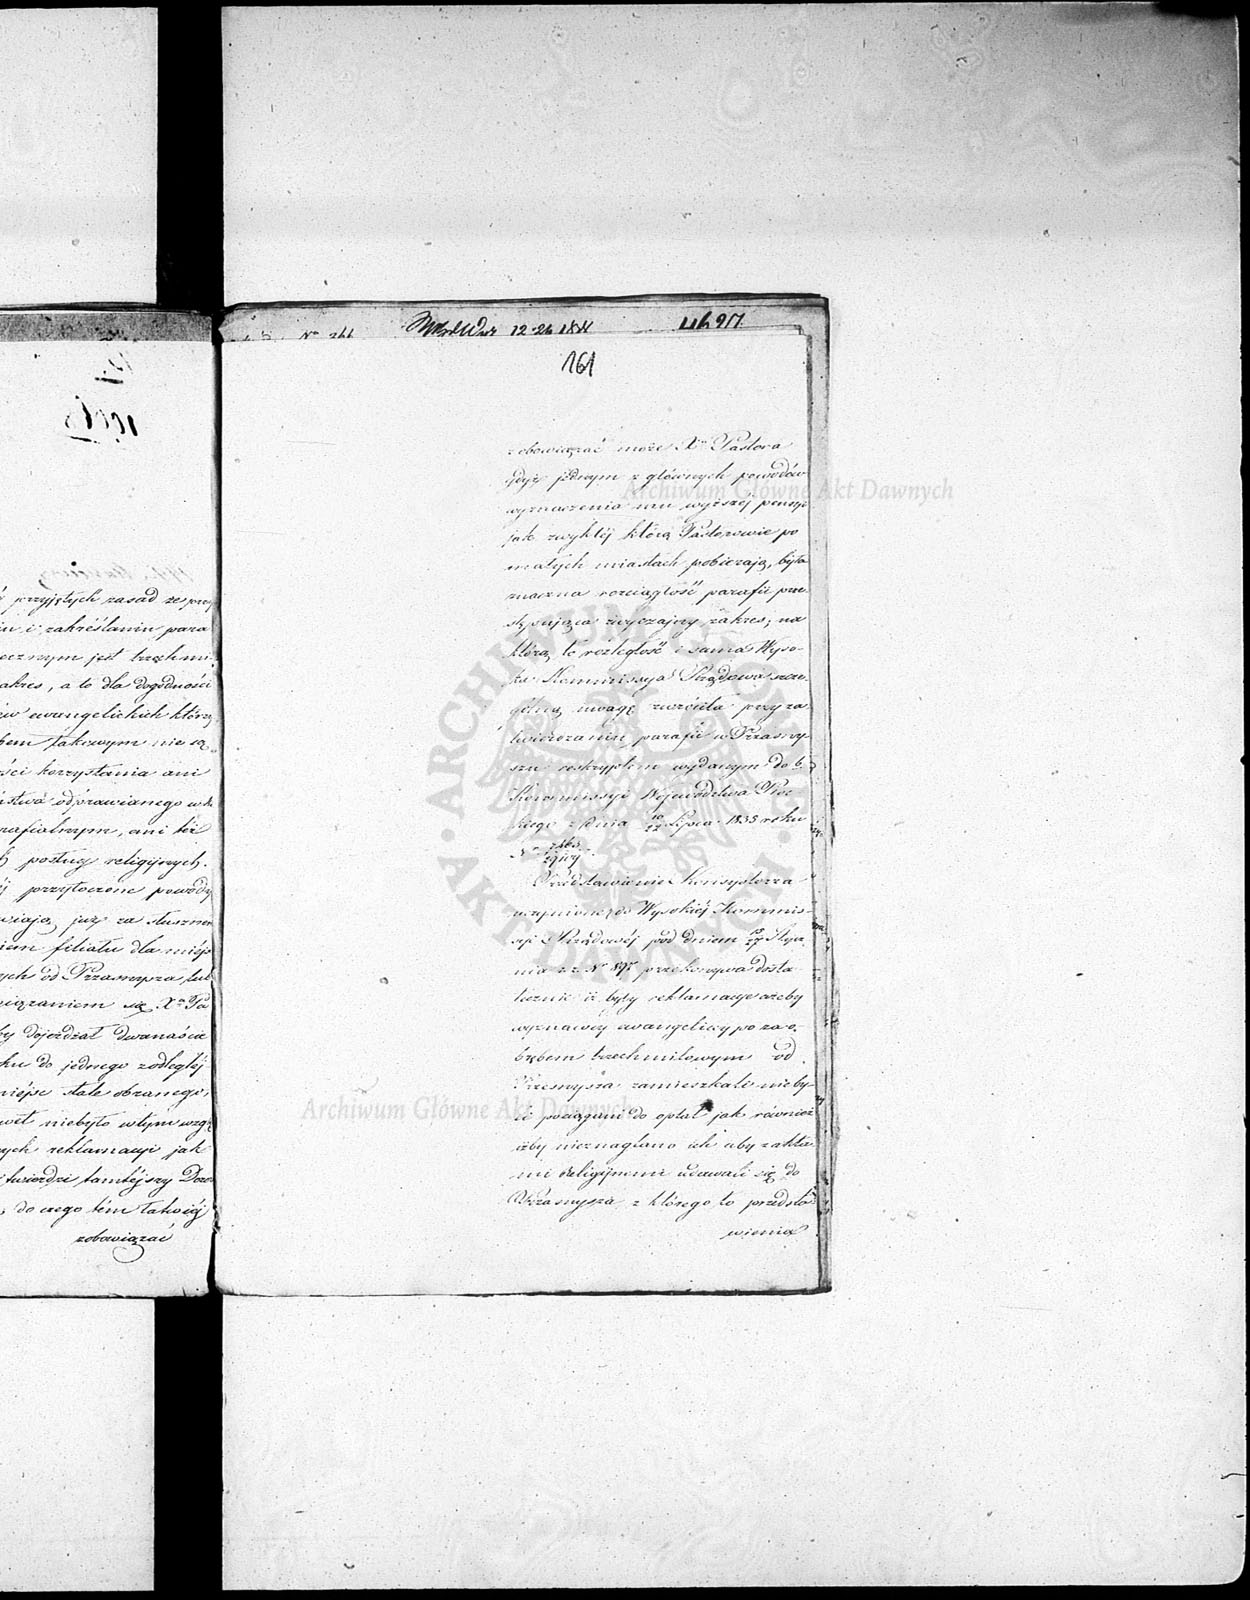 przyjętych zasad ze przy
i zakréślaniu para
jest trzechmi
akres, a to dla dogodności
ewangelickich którzy
takowym nie są
korzystania ani
odprawianego w
rafialnym, ani też
posług religijnych.
przytoczone powody
już za słuszne
filiału dla miéjs
od Przasnysza
się Xa Pa
dojeżdżał dwanaście
do jednego
stale obranego,
niebyło w tym wzglę
reklamacyi jak
twierdzi tamtéjszy Dozo
do czego tém łatwiéj
zobowiązać
No 266
12-26 18
4697
161
zobowiązać może Xa Pastora
gdyż jednym z głównych powodów
wyznaczenia mu wyższéj pensyi
jak zwykłéj którą Pastorowie po
małych miastach pobierają, była
znaczna rozciągłość parafii prze
stępująca zwyczajny zakres, na
którą to rozległość i sama Wyso-
ka Kommissya Rządowa szcze
gólną uwagę zwróciła przy za
twierdzaniu parafii w Przasny-
szu reskryptem wydanym do b.
Kommissyi Województwa Płoc
kiego z dnia 10/22 Lipca 1835 roku
No
Przedstawienie Konsystorza
uczynione do Wysokiéj Kommis-
syi Rządowéj pod dniem Stycz
nia r.z. No 897 przekonywa dosta
tecznie iż były reklamacye ażeby
wyznawcy ewangeliccy po za o-
brębem trzechmilowym od
Przasnysza zamieszkali nieby-
li pociągani do opłat jak również
ażby nieznaglano ich aby z akta
mi Religijnemi udawali się do
Przasnysza z którego to przedsta
wienia
Archiwum Główne Akt Dawnych
Archiwum Główne Akt Dawnych
ARCHIWUM GŁÓWNE AKT DAWNYCH